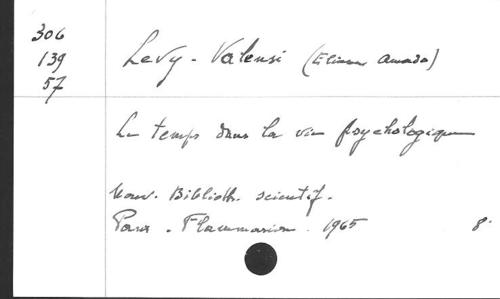 306
139
57
Levy-Valensi (Eliane Amado)
Le temps dans la vie psychologique
Nouv. Biblioth. scientif.
Paris. Flammarion. 1965 8°